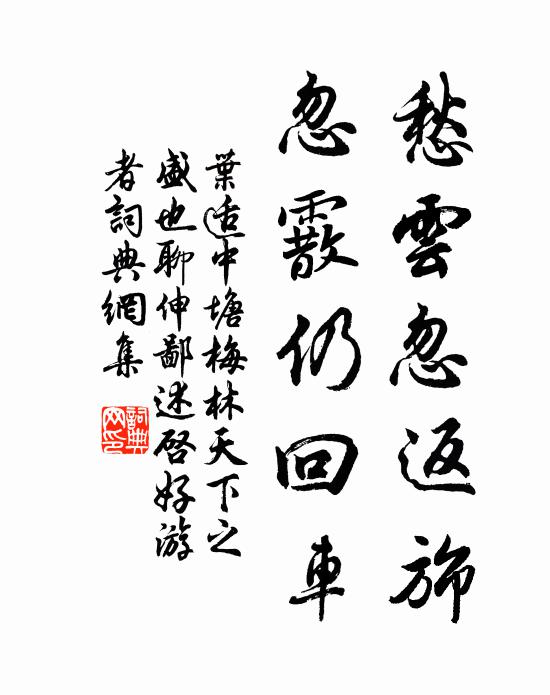 愁雲忽返旆
忽霰仍回車
葉适中塘梅林天下之
盛也聊伸鄙述啓好游
者詞典網集
詞典
网印